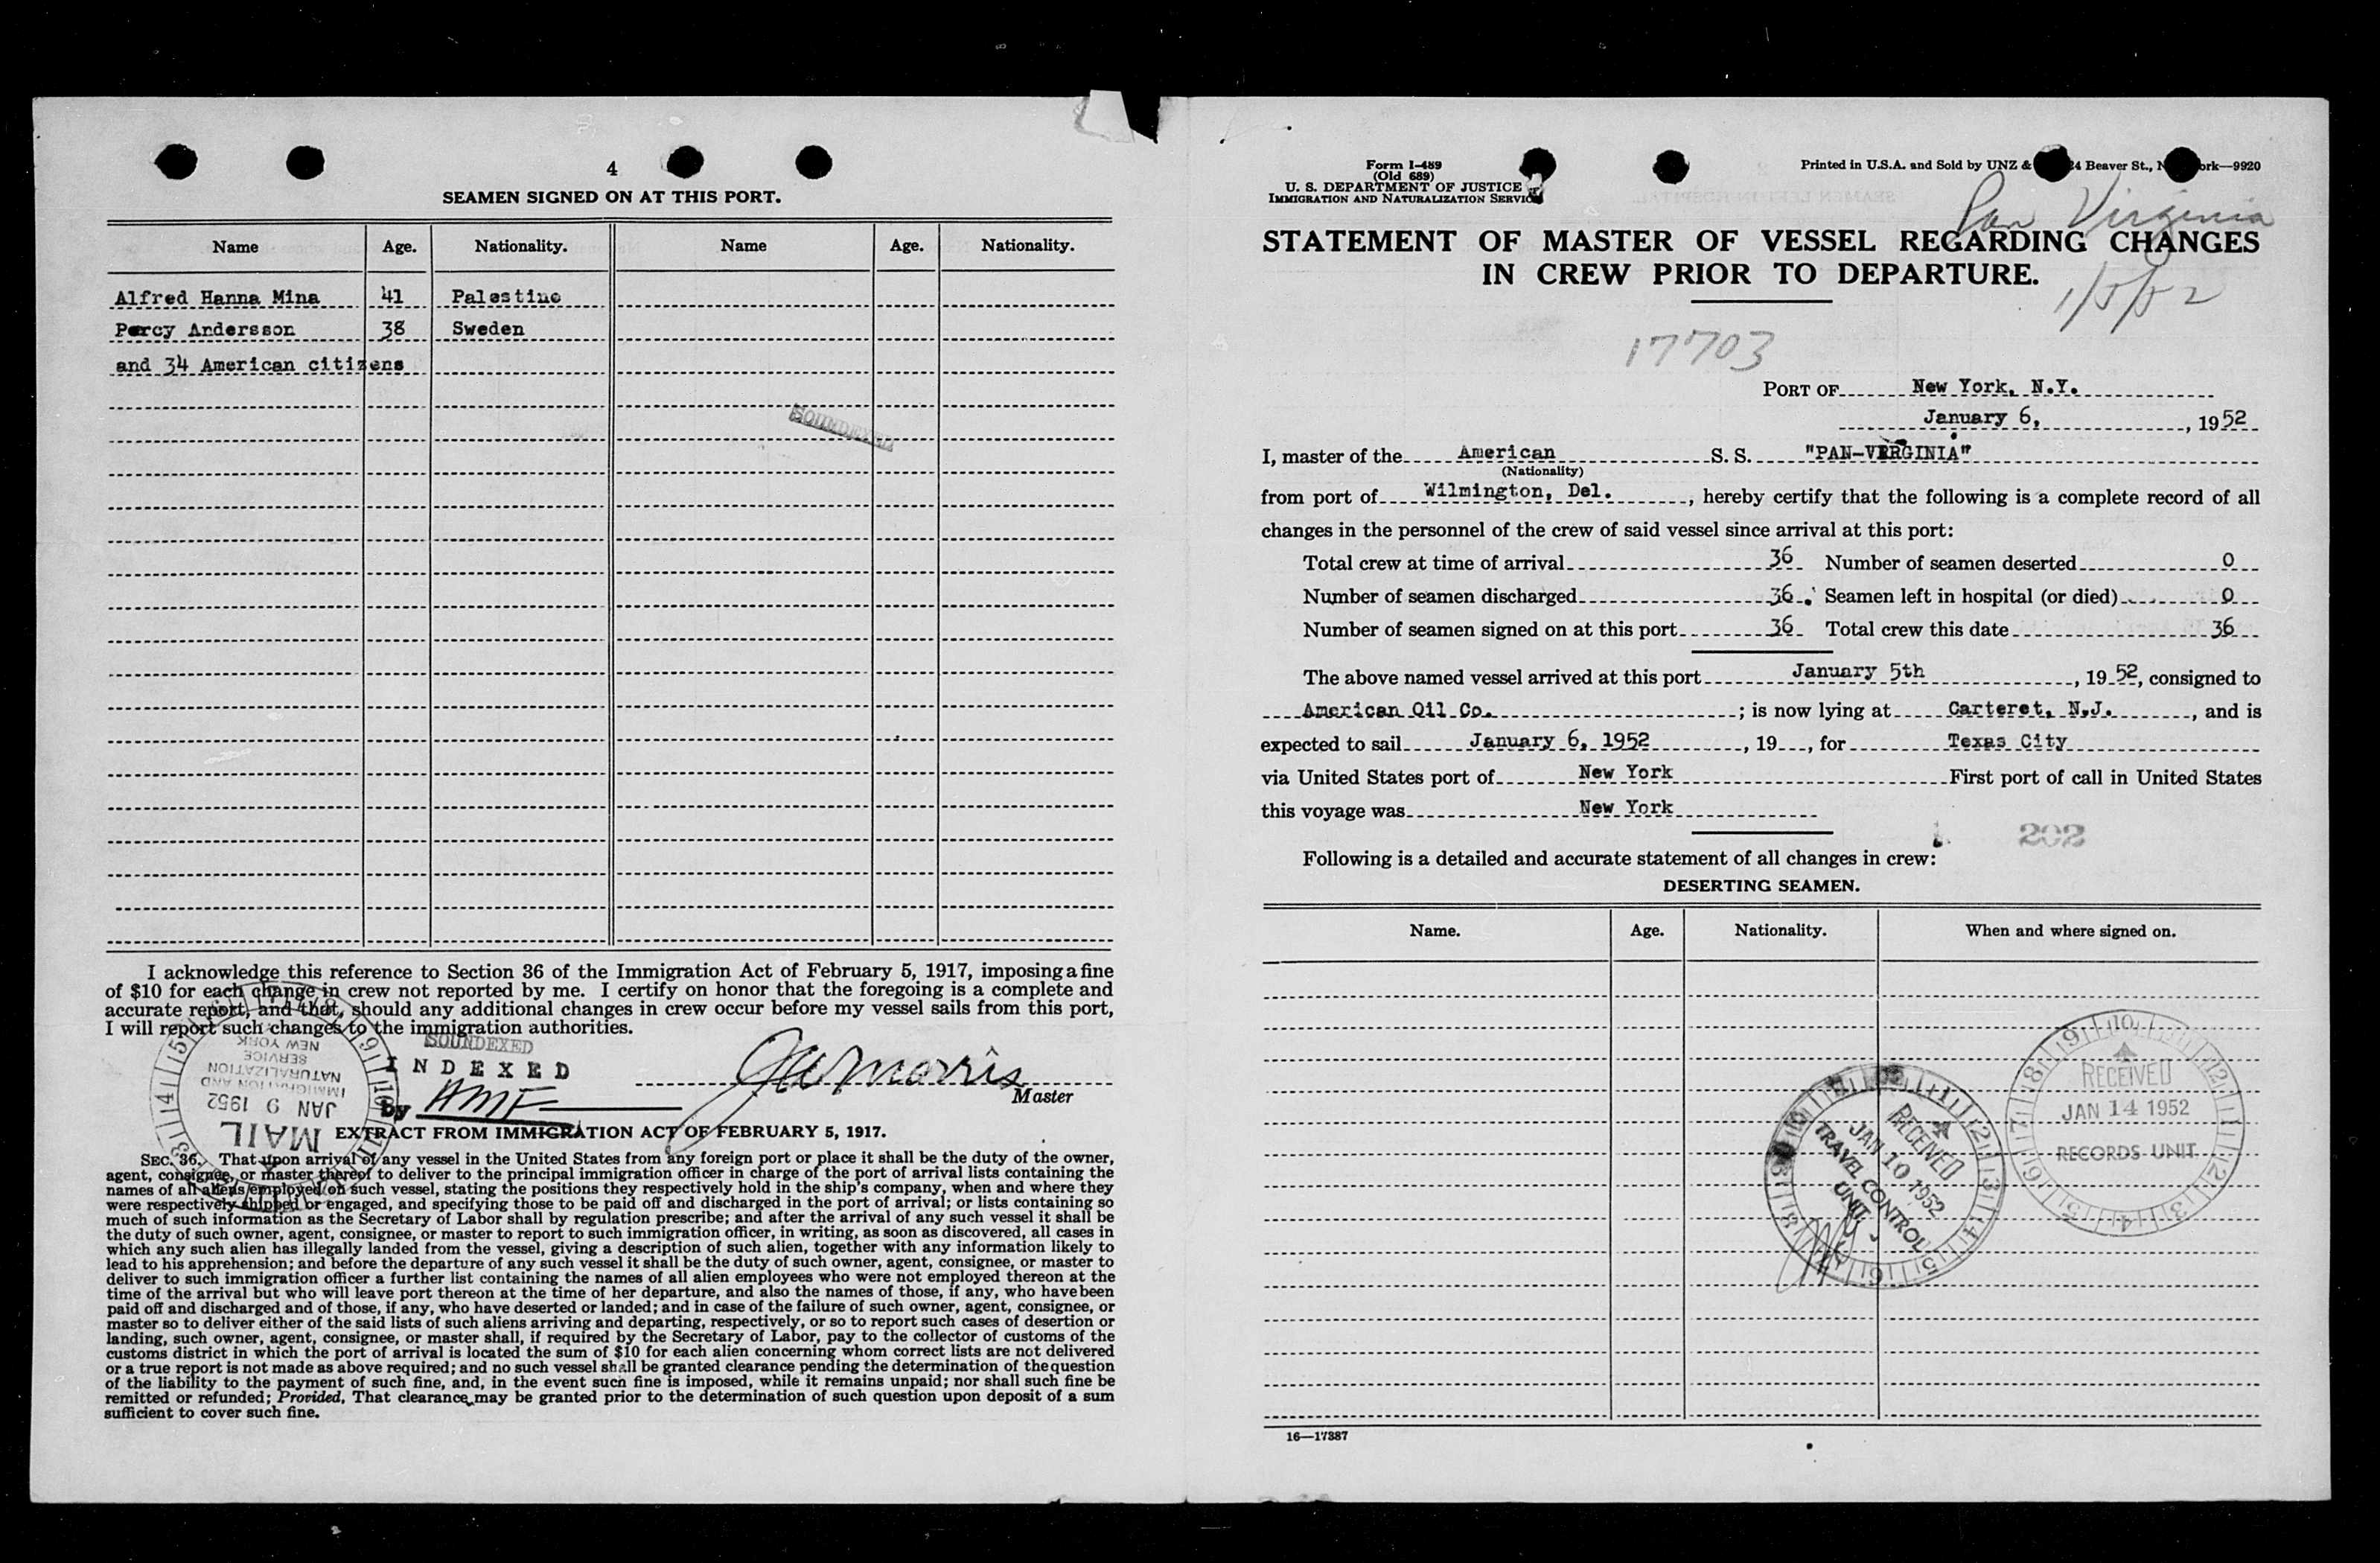 4
SEAMEN SIGNED ON AT THIS PORT.
Name Age. Nationality. Name Age. Nationality.
Alfred Hanna Mina 41 Palestine
Percy Andersson 38 Sweden
and 34 American citizens
SOUNDEXED
I acknowledge this reference to Section 36 of the Immigration Act of February 5, 1917, imposing a fine
of $10 for each change in crew not reported by me. I certify on honor that the foregoing is a complete and
accurate report, and that, should any additional changes in crew occur before my vessel sails from this port,
I will report such changes to the immigration authorities.
SOUNDEXED
INDEXED
by AMF
JW Morris
Master
NEW YORK
SERVICE
NATURALIZATION
IMMIGRATION AND
JAN 9 1952
MAIL
EXTRACT FROM IMMIGRATION ACT OF FEBRUARY 5, 1917.
SEC. 36. That upon arrival of any vessel in the United States from any foreign port or place it shall be the duty of the owner,
agent, consignee, or master thereof to deliver to the principal immigration officer in charge of the port of arrival lists containing the
names of all aliens employed on such vessel, stating the positions they respectively hold in the ship's company, when and where they
were respectively shipped or engaged, and specifying those to be paid off and discharged in the port of arrival; or lists containing so
much of such information as the Secretary of Labor shall by regulation prescribe; and after the arrival of any such vessel it shall be
the duty of such owner, agent, consignee, or master to report to such immigration officer, in writing, as soon as discovered, all cases in
which any such alien has illegally landed from the vessel, giving a description of such alien, together with any information likely to
lead to his apprehension; and before the departure of any such vessel it shall be the duty of such owner, agent, consignee, or master to
deliver to such immigration officer a further list containing the names of all alien employees who were not employed thereon at the
time of the arrival but who will leave port thereon at the time of her departure, and also the names of those, if any, who have been
paid off and discharged and of those, if any, who have deserted or landed; and in case of the failure of such owner, agent, consignee, or
master so to deliver either of the said lists of such aliens arriving and departing, respectively, or so to report such cases of desertion or
landing, such owner, agent, consignee, or master shall, if required by the Secretary of Labor, pay to the collector of customs of the
customs district in which the port of arrival is located the sum of $10 for each alien concerning whom correct lists are not delivered
or a true report is not made as above required; and no such vessel shall be granted clearance pending the determination of the question
of the liability to the payment of such fine, and, in the event such fine is imposed, while it remains unpaid; nor shall such fine be
remitted or refunded; Provided, That clearance may be granted prior to the determination of such question upon deposit of a sum
sufficient to cover such fine.
Form I-489
(Old 689)
U. S. DEPARTMENT OF JUSTICE
IMMIGRATION AND NATURALIZATION SERVICE
Printed in U.S.A. and Sold by UNZ & 24 Beaver St., N ork—9920
Pan Virginia
STATEMENT OF MASTER OF VESSEL REGARDING CHANGES
IN CREW PRIOR TO DEPARTURE.
1/5/52
17703
PORT OF New York, N.Y.
January 6, , 1952
I, master of the American S. S. "PAN-VIRGINIA"
(Nationality)
from port of Wilmington, Del. , hereby certify that the following is a complete record of all
changes in the personnel of the crew of said vessel since arrival at this port:
Total crew at time of arrival 36 Number of seamen deserted 0
Number of seamen discharged 36 Seamen left in hospital (or died) 0
Number of seamen signed on at this port 36 Total crew this date 36
The above named vessel arrived at this port January 5th , 1952, consigned to
American Oil Co. ; is now lying at Carteret, N.J. , and is
expected to sail January 6, 1952 , 19 , for Texas City
via United States port of New York First port of call in United States
this voyage was New York
202
Following is a detailed and accurate statement of all changes in crew:
DESERTING SEAMEN.
Name. Age. Nationality. When and where signed on.
RECEIVED
JAN 14 1952
RECORDS UNIT
RECEIVED
JAN 10 1952
TRAVEL CONTROL
UNIT
16—17387